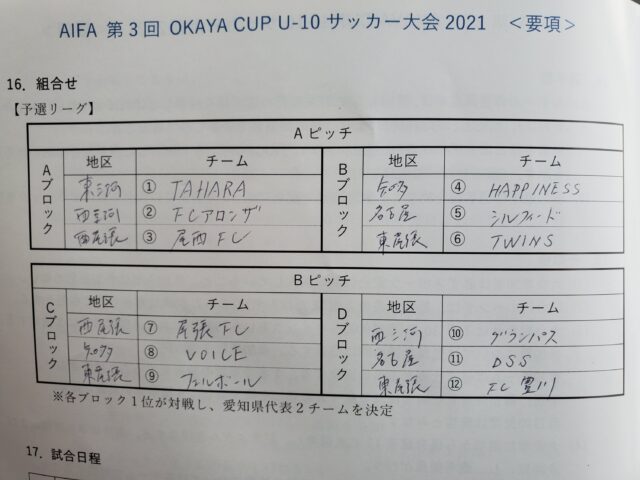 AIFA 第3回 OKAYA CUP U-10 サッカー大会 2021 ＜要項＞
16. 組合せ
【予選リーグ】
Aピッチ
Aブロック
地区 チーム
東三河 ① TAHARA
西三河 ② FCアロンザ
西尾張 ③ 尾西FC
Bブロック
地区 チーム
知多 ④ HAPPINESS
名古屋 ⑤ シルフィード
東尾張 ⑥ TWINS
Bピッチ
Cブロック
地区 チーム
西尾張 ⑦ 尾張FC
知多 ⑧ VOICE
東尾張 ⑨ フェルボール
Dブロック
地区 チーム
西三河 ⑩ グランパス
名古屋 ⑪ DSS
東尾張 ⑫ FC豊川
※各ブロック1位が対戦し、愛知県代表2チームを決定
17. 試合日程